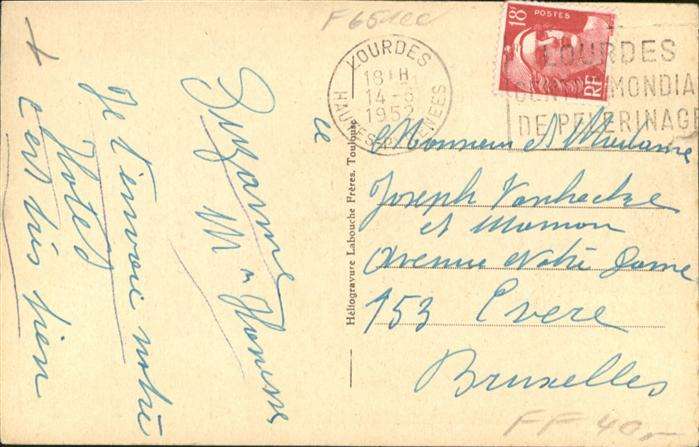 F 65100
+
Je t'envoie notre
Hotel
c'est très bien
Suzanne
Mr
ce
LOURDES
18 H
14 -8
1952
HAUTES-PYRENEES
18F POSTES
RF
LOURDES
CENTRE MONDIAL
DE PELERINAGE
Héliogravure Labouche Frères, Toulouse
Monsieur et Madame
Joseph
et Maman
Avenue Notre Dame
153 Evere
Bruxelles
FF 40,-